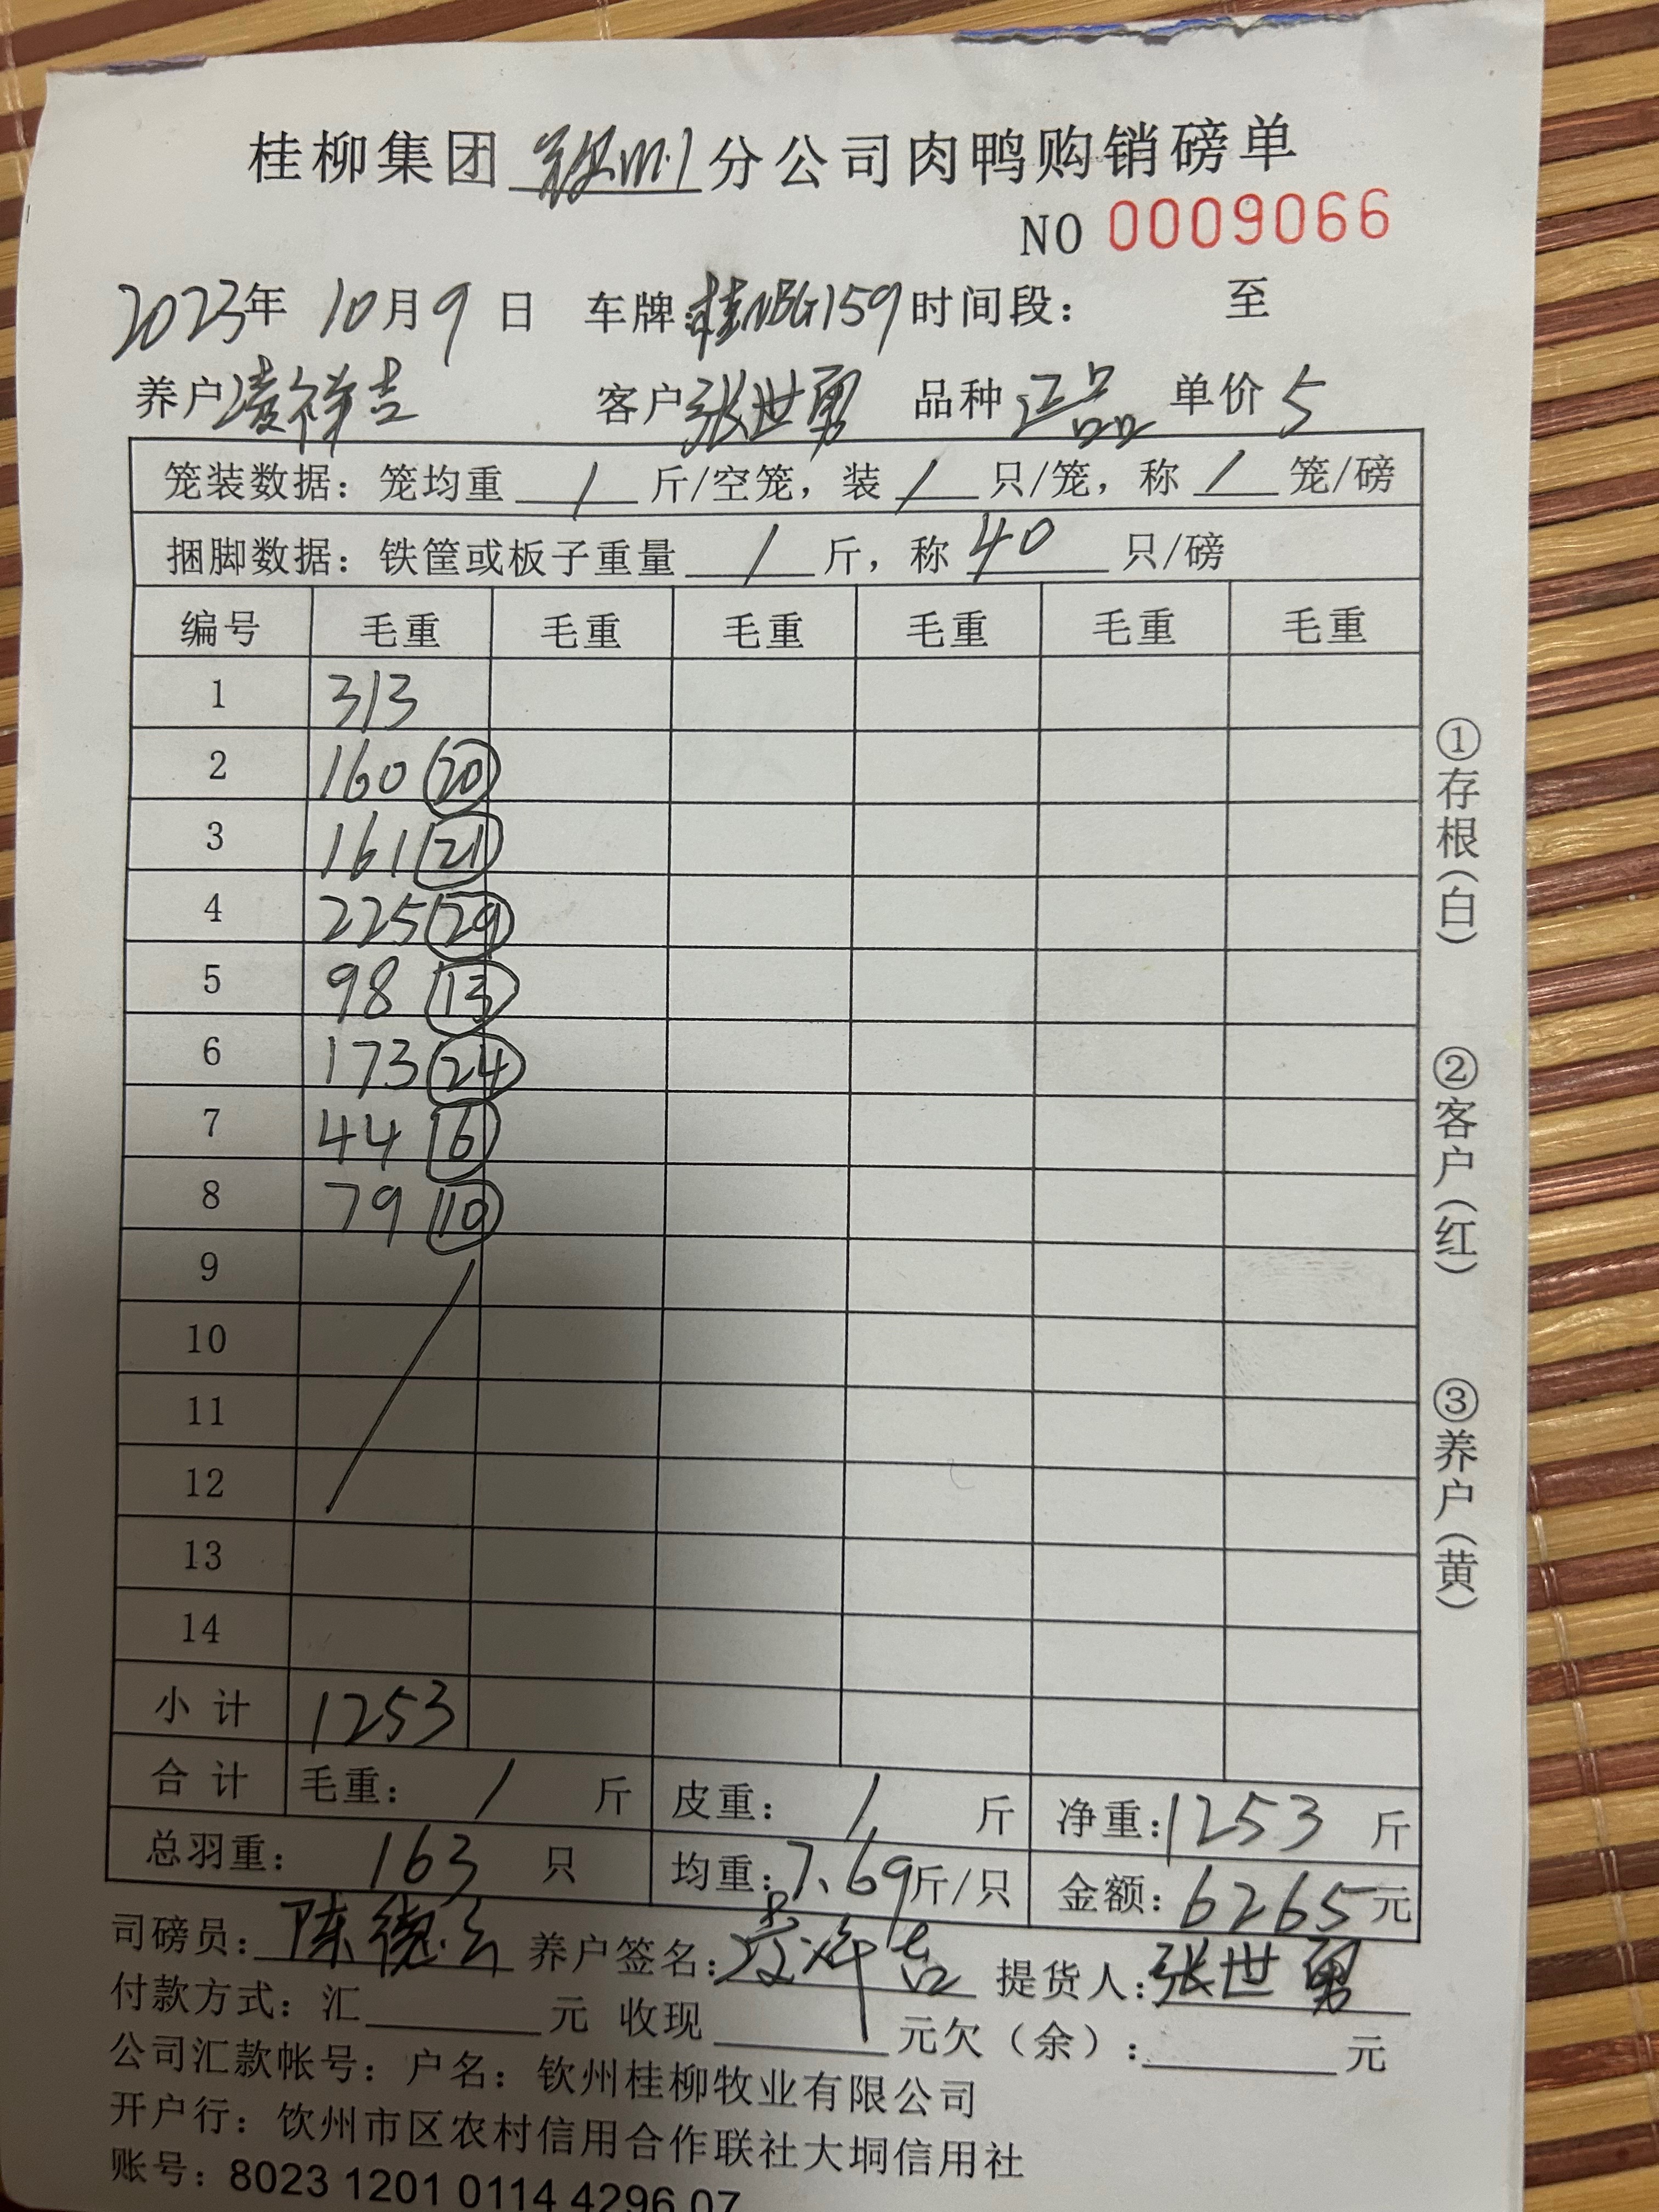 桂柳集团钦州分公司肉鸭购销磅单
NO 0009066
2023年 10月9日 车牌桂NBG159时间段： 至
养户凌祥吉 客户张世勇 品种正品 单价5
笼装数据：笼均重 / 斤/空笼，装 / 只/笼，称 / 笼/磅
捆脚数据：铁筐或板子重量 / 斤，称 40 只/磅
编号 毛重 毛重 毛重 毛重 毛重 毛重
1 313
2 160 20
3 161 21
4 225 29
5 98 13
6 173 24
7 44 6
8 79 10
9
10
11
12
13
14
小计 1253
合计 毛重： / 斤 皮重： / 斤 净重：1253 斤
总羽重： 163 只 均重：7.69斤/只 金额：6265元
司磅员：陈德 养户签名：凌祥吉 提货人：张世勇
付款方式：汇 元 收现 元欠（余）： 元
公司汇款帐号：户名：钦州桂柳牧业有限公司
开户行：饮州市区农村信用合作联社大垌信用社
账号：8023 1201 0114 4296 07
①存根（白） ②客户（红） ③养户（黄）